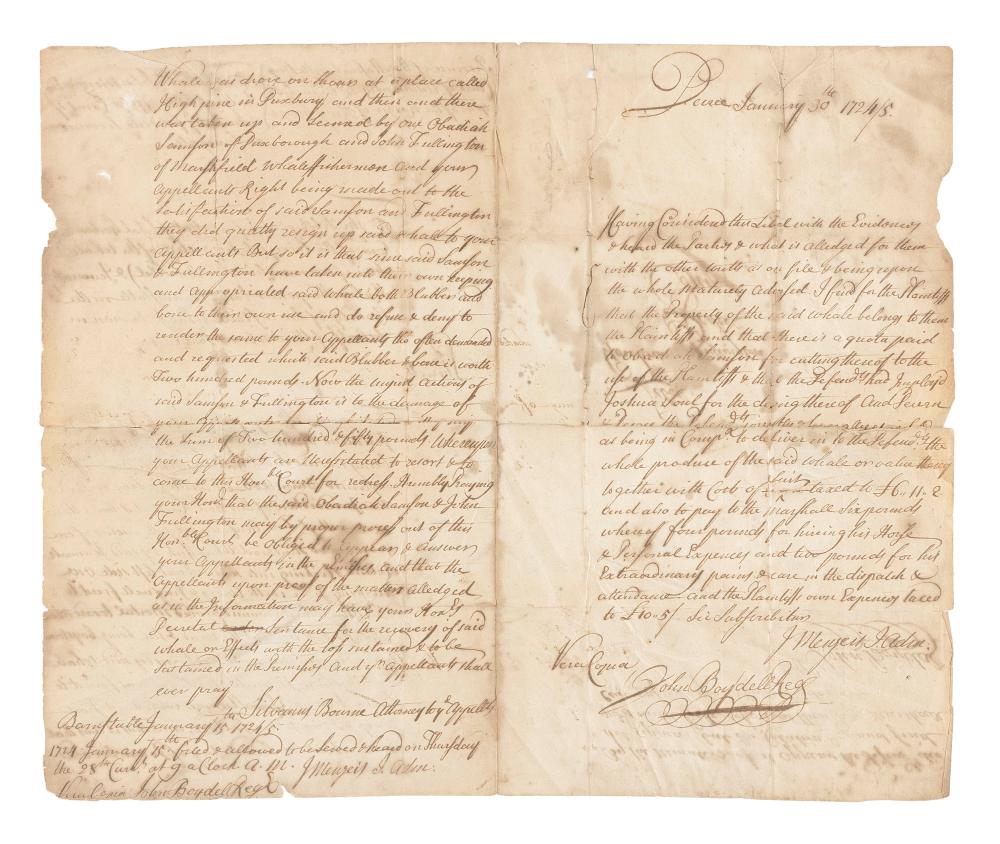 Whale was drove on Shoar at a place called
High pine in Duxbury and then and there
was taken up and Secured by one Obadiah
Samson of Duxborough and John Fullington
of Marshfield Whalefishermen and your
Appellants Right being made out to the
satisfaction of said Samson and Fullington
they did quietly resign up said whale to your
Appellants But so it is that since said Samson
& Fullington have taken into their own keeping
and appropriated said whale both Blubber and
bone to their own use and do refuse & deny to
render the same to your Appellants tho often demanded
and requested which said Blubber & bone is worth
Two hundred pounds. Now the unjust Actions of
said Samson & Fullington is to the damage of
your Appellants
the Sum of Two hundred & fifty pounds Whereupon
your Appellants are Necessitated to resort & to
come to this Honble Court for redress Humbly Praying
your Honrs that the said Obadiah Samson & John
Fullington may by proper process out of this
Honble Court be obliged to appear & answer
your Appellants in the premises and that the
Appellants upon proof of the matters Alledged
as in the Information may have your Honrs
Decretal Sentance for the recovery of said
whale or Effects with the loss sustained & to be
Sustained in the Premises And yr Appellants shall
ever pray
Silvanus Bourne Attorney to ye Appellts
Barnstable January 15th 1724/5
1724 January 15th filed & allowed to be served & heard on Thursday
the 28th Currt at 9 a Clock A.M. J Menzeis J. Adm.
Vera Copia John Boydell Regr
Decree January 30th 1724/5.
Having Considered this Libel with the Evidences
& heard the Parties & what is alledged for them
with the other writs as on file & being upon
the whole Maturely Advised. I find for the Plaintiffs
that the Property of the said Whale belong to them
the Plaintiffs and that there is a quota paid
to Obadiah Samson for cutting thereof to the
use of the Plaintiffs & that the Defendt had Imployd
Joshua Soul for the doing thereof And Decern
&
as being in Compa to deliver in to the Defendts the
whole produce of the said Whale or value thereof
together with Costs of suit taxed to £6 .. 11 .. 2
and also to pay to the Marshall Six pounds
whereof four pounds for hireing his Horse
& Personal Expences and two pounds for his
Extraordinary pains & care in the dispatch &
attendance and the Plaintiffs own Expences taxed
to £10 .. 5/ Sic Subscribitur
J Menzeis J. Adm.
Vera Copia
John Boydell Regr